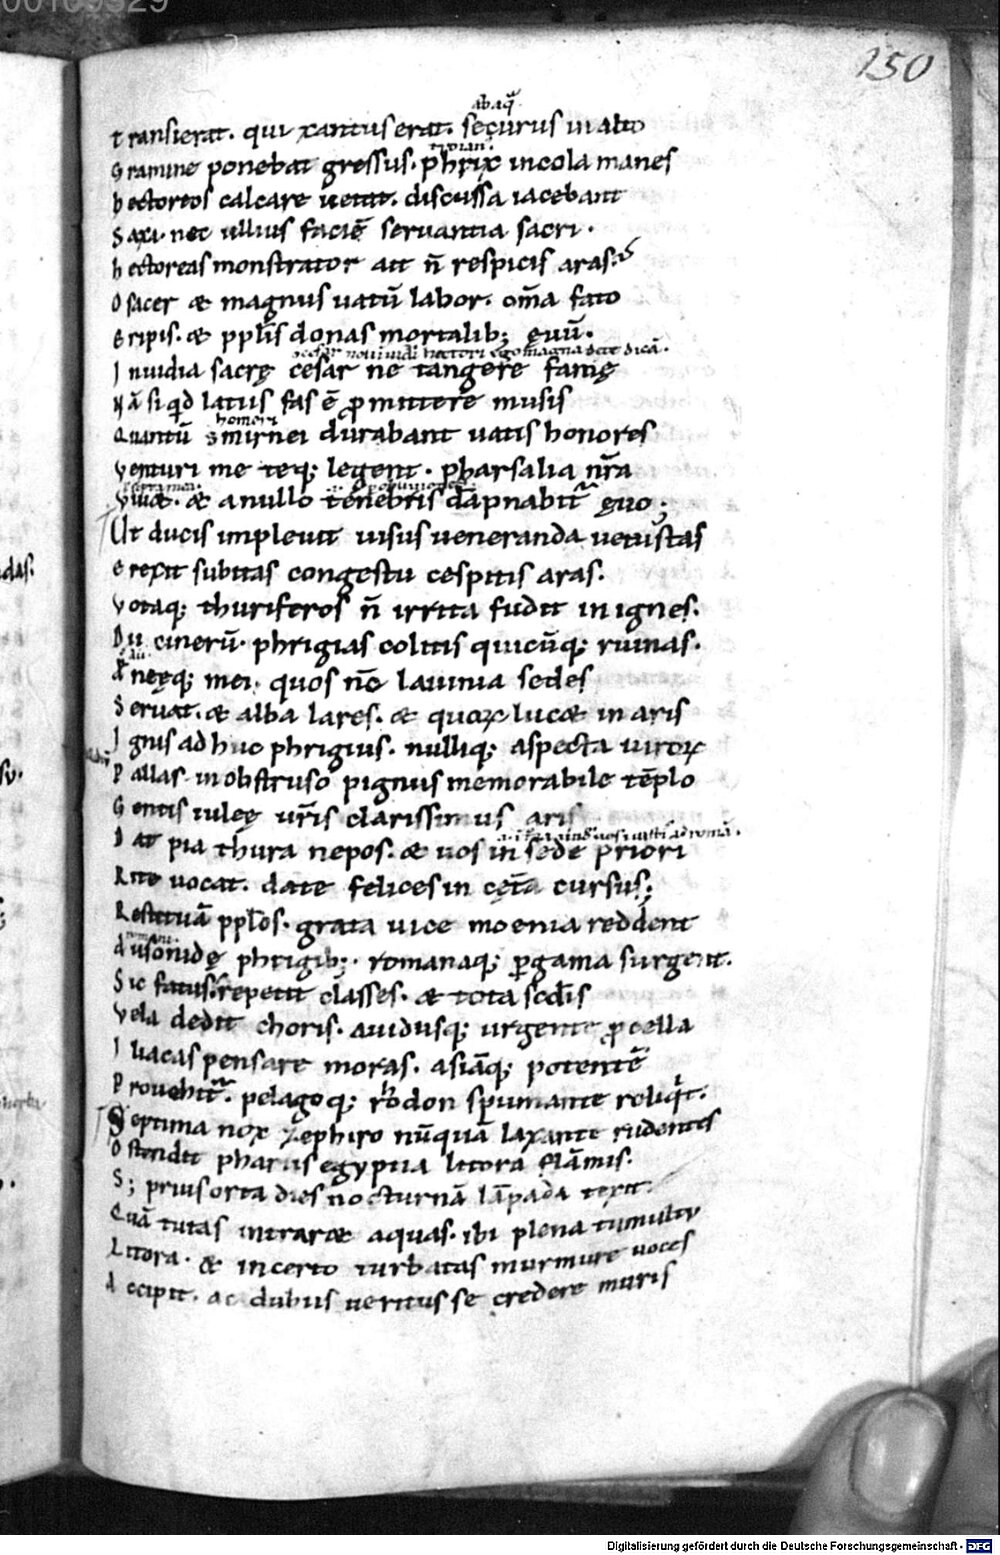 00109329
150
abaq̄
transierat. qui xantus erat. securus in alto
troian⁹.
Gramine ponebat gressus. phrix incola manes
hectoreos calcare uetat. discussa iacebant
Saxi. nec ullius faciē seruantia sacri.
hectoreas monstrator ait ñ respicis aras.
O sacer & magnus uatū labor. om̄a fato
Eripis. & ppl̄is donas mortalib; ęuū.
Inuidia sacrę cesar ne tangere famę
Nā siqid latiis fas ē ꝓmittere musis
homeri
Quantū smirnei durabunt uatis honores
Venturi me teq; legent. pharsalia nr̄a
Viuet. & a nullo tenebris dāpnabit᷑ ęuo;
Ut ducis impleuit uisus ueneranda uetustas
erexit subitas congestu cespitis aras.
Votaq; thuriferos ñ irrita fudit in ignes.
Dii cinerū. phrigias colitis quicūq; ruinas.
Æneęq; mei. quos nc̄ lauinia sedes
Seruat. & alba lares. & quoꝝ lucet in aris
Ignis adhuc phrigius. nulliq; aspecta uiroꝝ
Pallas in obstruso pignus memorabile tēplo
Gentis iuleę ur̄is clarissimus aris
Dat pia thura nepos. & uos in sede priori
Rite uocat. date felices in cęt̄a cursus;
Restituā ppl̄os. grata uice moenia reddent
romani
Ausonidę phrigib;. romanaq; ꝑgama surgent.
Sic fatus. repetit classes. & tota scd̄is
Vela dedit choris. auidusq; urgente ꝓcella
Iliacas pensare moras. asiāq; potentē
Prouehit᷑. pelagoq; rhodon spumante reliq̇t.
Septima nox zephiro nūquā laxante rudentes
Ostendit pharus egyptia litora flāmis.
S; prius orta dies nocturnā lāpada texit
Quā tutas intraret aquas. ibi plena tumultu
Litora. & incerto turbatas murmure uoces
Accipit. ac dubiis ueritus se credere muris
Digitalisierung gefördert durch die Deutsche Forschungsgemeinschaft - DFG